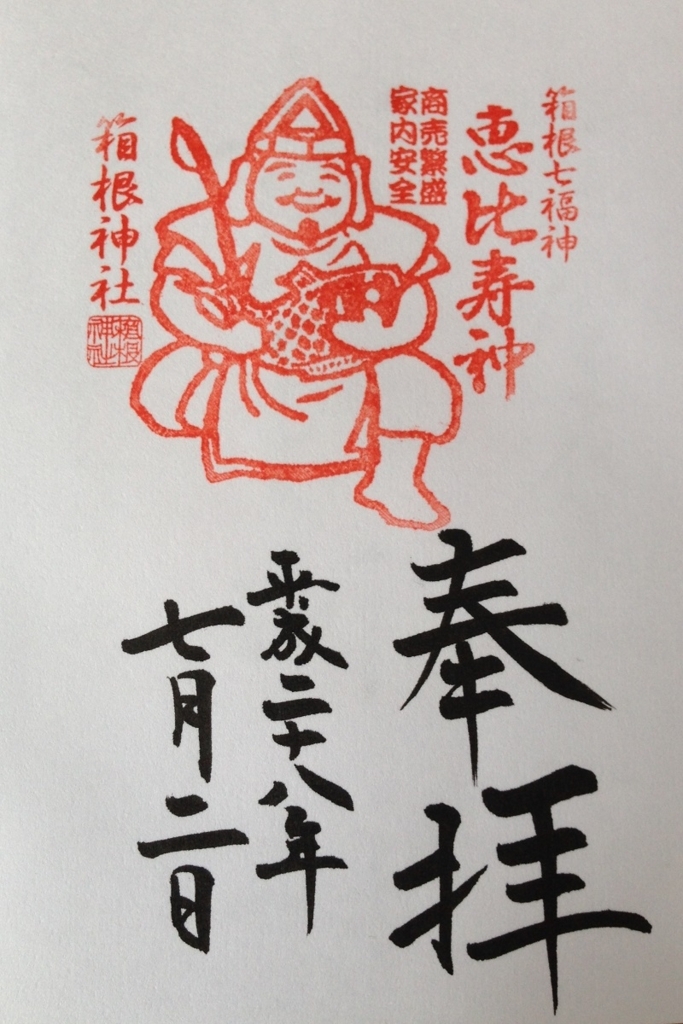 箱根七福神
恵比寿神
商売繁盛
家内安全
箱根神社
箱根
神社
奉拝
平成二十八年
七月二日